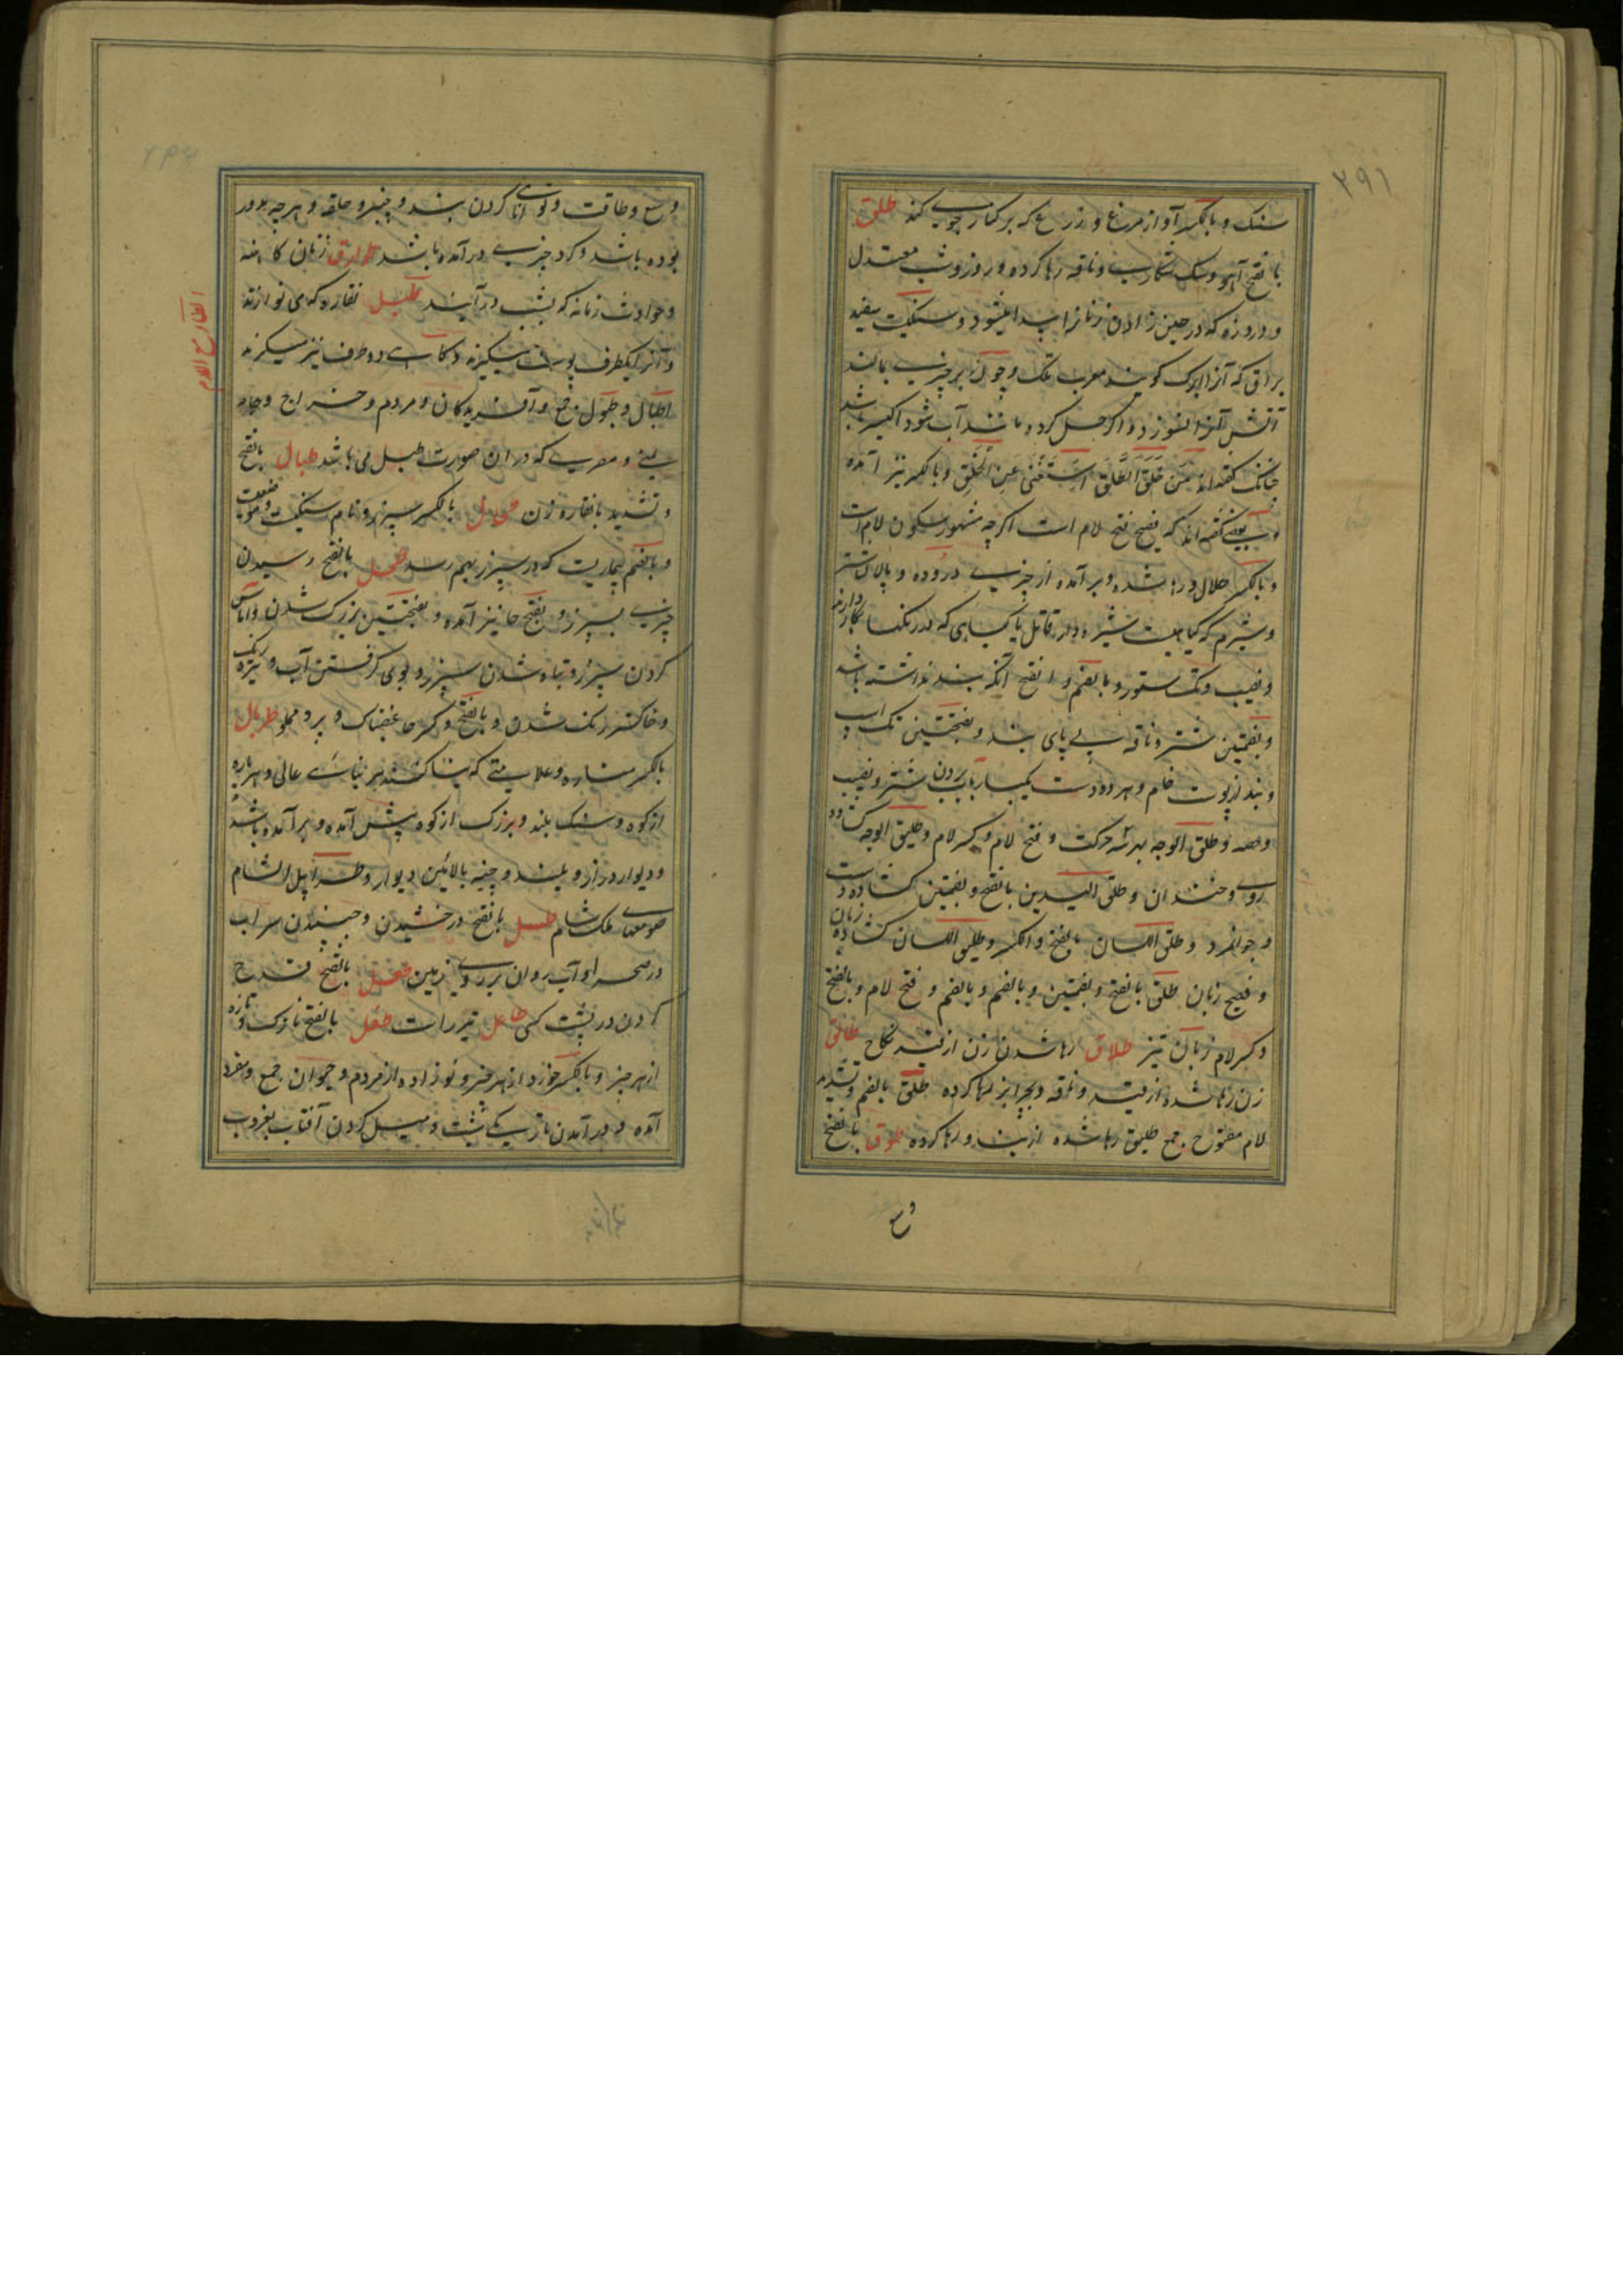 ۲۹۱
سنگ و بالکسر آواز مرغ و زرع که بر کنار جوی کنند طلق
بالفتح آهو و سگ شکاری و ناقه رها کرده و روز و شب معتدل
و دروزه که در حین زادن زنانرا پیدا میشود و سنگیست سفید
براق که آنرا ابرک گویند معرب تلک و چون بر چیزی بمالند
آتش آنرا نسوزد و اگر حل کرده باشند آب شود اکسیر باشد
چنانکه گفته اند مَن حَلَّ الطَّلَقَ اسْتَغْنَی عَنِ الْخَلْقِ و بالکسر نیز آمده
و بعضی گفته اند که فصیح فتح لام است اگرچه مشهور سکون لام است
و بالکسر حلال و رها شده و برآمده از چیزی و روده و پالان شتر
و شبرم که گیاهیست شیره دار قاتل یا گیاهی که در رنگها بکار دارند
و نصیب و تک ستور و بالضم و بالفتح آنکه بند نداشته باشد
و بضمتین شتر و ناقه بی پای بند و بفتحتین تک اسب
و بند از پوست خام و هر دو دست یکبار بآب بردن شتر و نصیب
و حصه و طلق الوجه بهر سه حرکت و فتح لام و کسر لام و طلیق الوجه گشاده
روی و خندان و طلق الیدین بالفتح و بضمتین گشاده دست
و جوانمرد و طلق اللسان بالفتح و الکسر و طلیق اللسان گشاده زبان
و فصیح زبان طلق بالفتح و بضمتین و بالضم و بالضم و فتح لام و بالفتح
و کسر لام زبان تیز طلاق رها شدن زن از قید نکاح طالق
زن رها شده از قید و ناقه وبچرا بز رها کرده طلق بالضم و تشدید
لام مفتوح جمع طلیق رها شده از بند و رها کرده طوق بالفتح
وسع
وسع و طاقت و توانای کردن بند و چنبر و حلقه و هر چه مدور
بوده باشد و گرد چیزی درآمده باشد طوارق زنان کاهنه
و حوادث زمانه که بشب درآیند طبل نقاره که می نوازند
و آنرا یکطرف پوست میگیرند و گاهی دو طرف نیز میگیرند
اطبال و طبول جمع و آفریدگان و مردم و خراج و جامه
یمنی و مصری که در آن صورت طبل می باشد طبال بالفتح
و تشدید با نقاره زن طحال بالکسر سپرز و نام سگیست و موضعیست
و بالضم بیماریست که در سپرز بهم رسد طحل بالفتح رسیدن
چیزی بسپرز و بفتح حا نیز آمده و بفتحتین بزرگ شدن و آماس
کردن سپرز و تباه شدن سپرز و بوی گرفتن آب و تیره رنگ
و خاکستر رنگ شدن و بالفتح و کسر حا غضبناک و پر و مملو طربال
بالکسر مناره و علامتی که بنا کنند هر بنائے عالی و هر پاره
از کوه و سنگ بلند و بزرگ از کوه پیش آمده و برآمده باشد
و دیوار دراز و بلند و چینه بالائین دیوار و طرابیل الشام
صومعهای ملک شام طسل بالفتح درخشیدن و جنبیدن سراب
در صحرا و آب روان بر روی زمین طعل بالفتح قدح
کردن در پشت کسی طاعل تیر راست طفل بالفتح نازک و تازه
از هر چیز و بالکسر خورد از هر چیز و نوزاده از مردم و حیوان جمع و مفرد
آمده و درآمدن تاریکی شب و میل کردن آفتاب بغروب
الطاء مع اللام